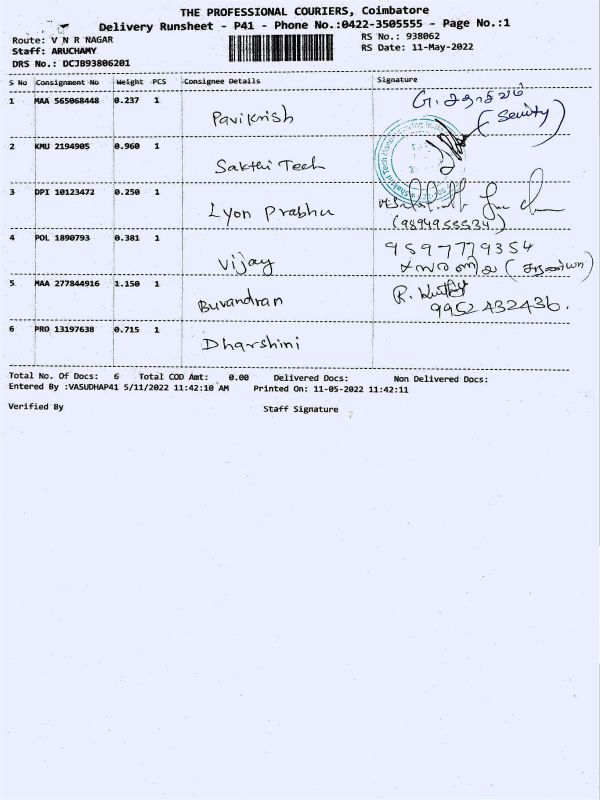 THE PROFESSIONAL COURIERS, Coimbatore
Delivery Runsheet - P41 - Phone No.:0422-3505555 - Page No.:1
Route: V N R NAGAR RS No.: 938062
Staff: ARUCHAMY RS Date: 11-May-2022
DRS No.: DCJB93806201
S No Consignment No Weight PCS Consignee Details Signature
1 MAA 565068448 0.237 1 Pavikrish
(Seurity)
2 KMU 2194905 0.960 1 Sakthi Tech
3 DPI 10123472 0.250 1 Lyon Prabhu
(9894955534)
4 POL 1890793 0.381 1 Vijay 9597779354
5 MAA 277844916 1.150 1 Buvandran
9952432436.
6 PRO 13197638 0.715 1 Dharshini
Total No. Of Docs: 6 Total COD Amt: 0.00 Delivered Docs: Non Delivered Docs:
Entered By :VASUDHAP41 5/11/2022 11:42:10 AM Printed On: 11-05-2022 11:42:11
Verified By Staff Signature